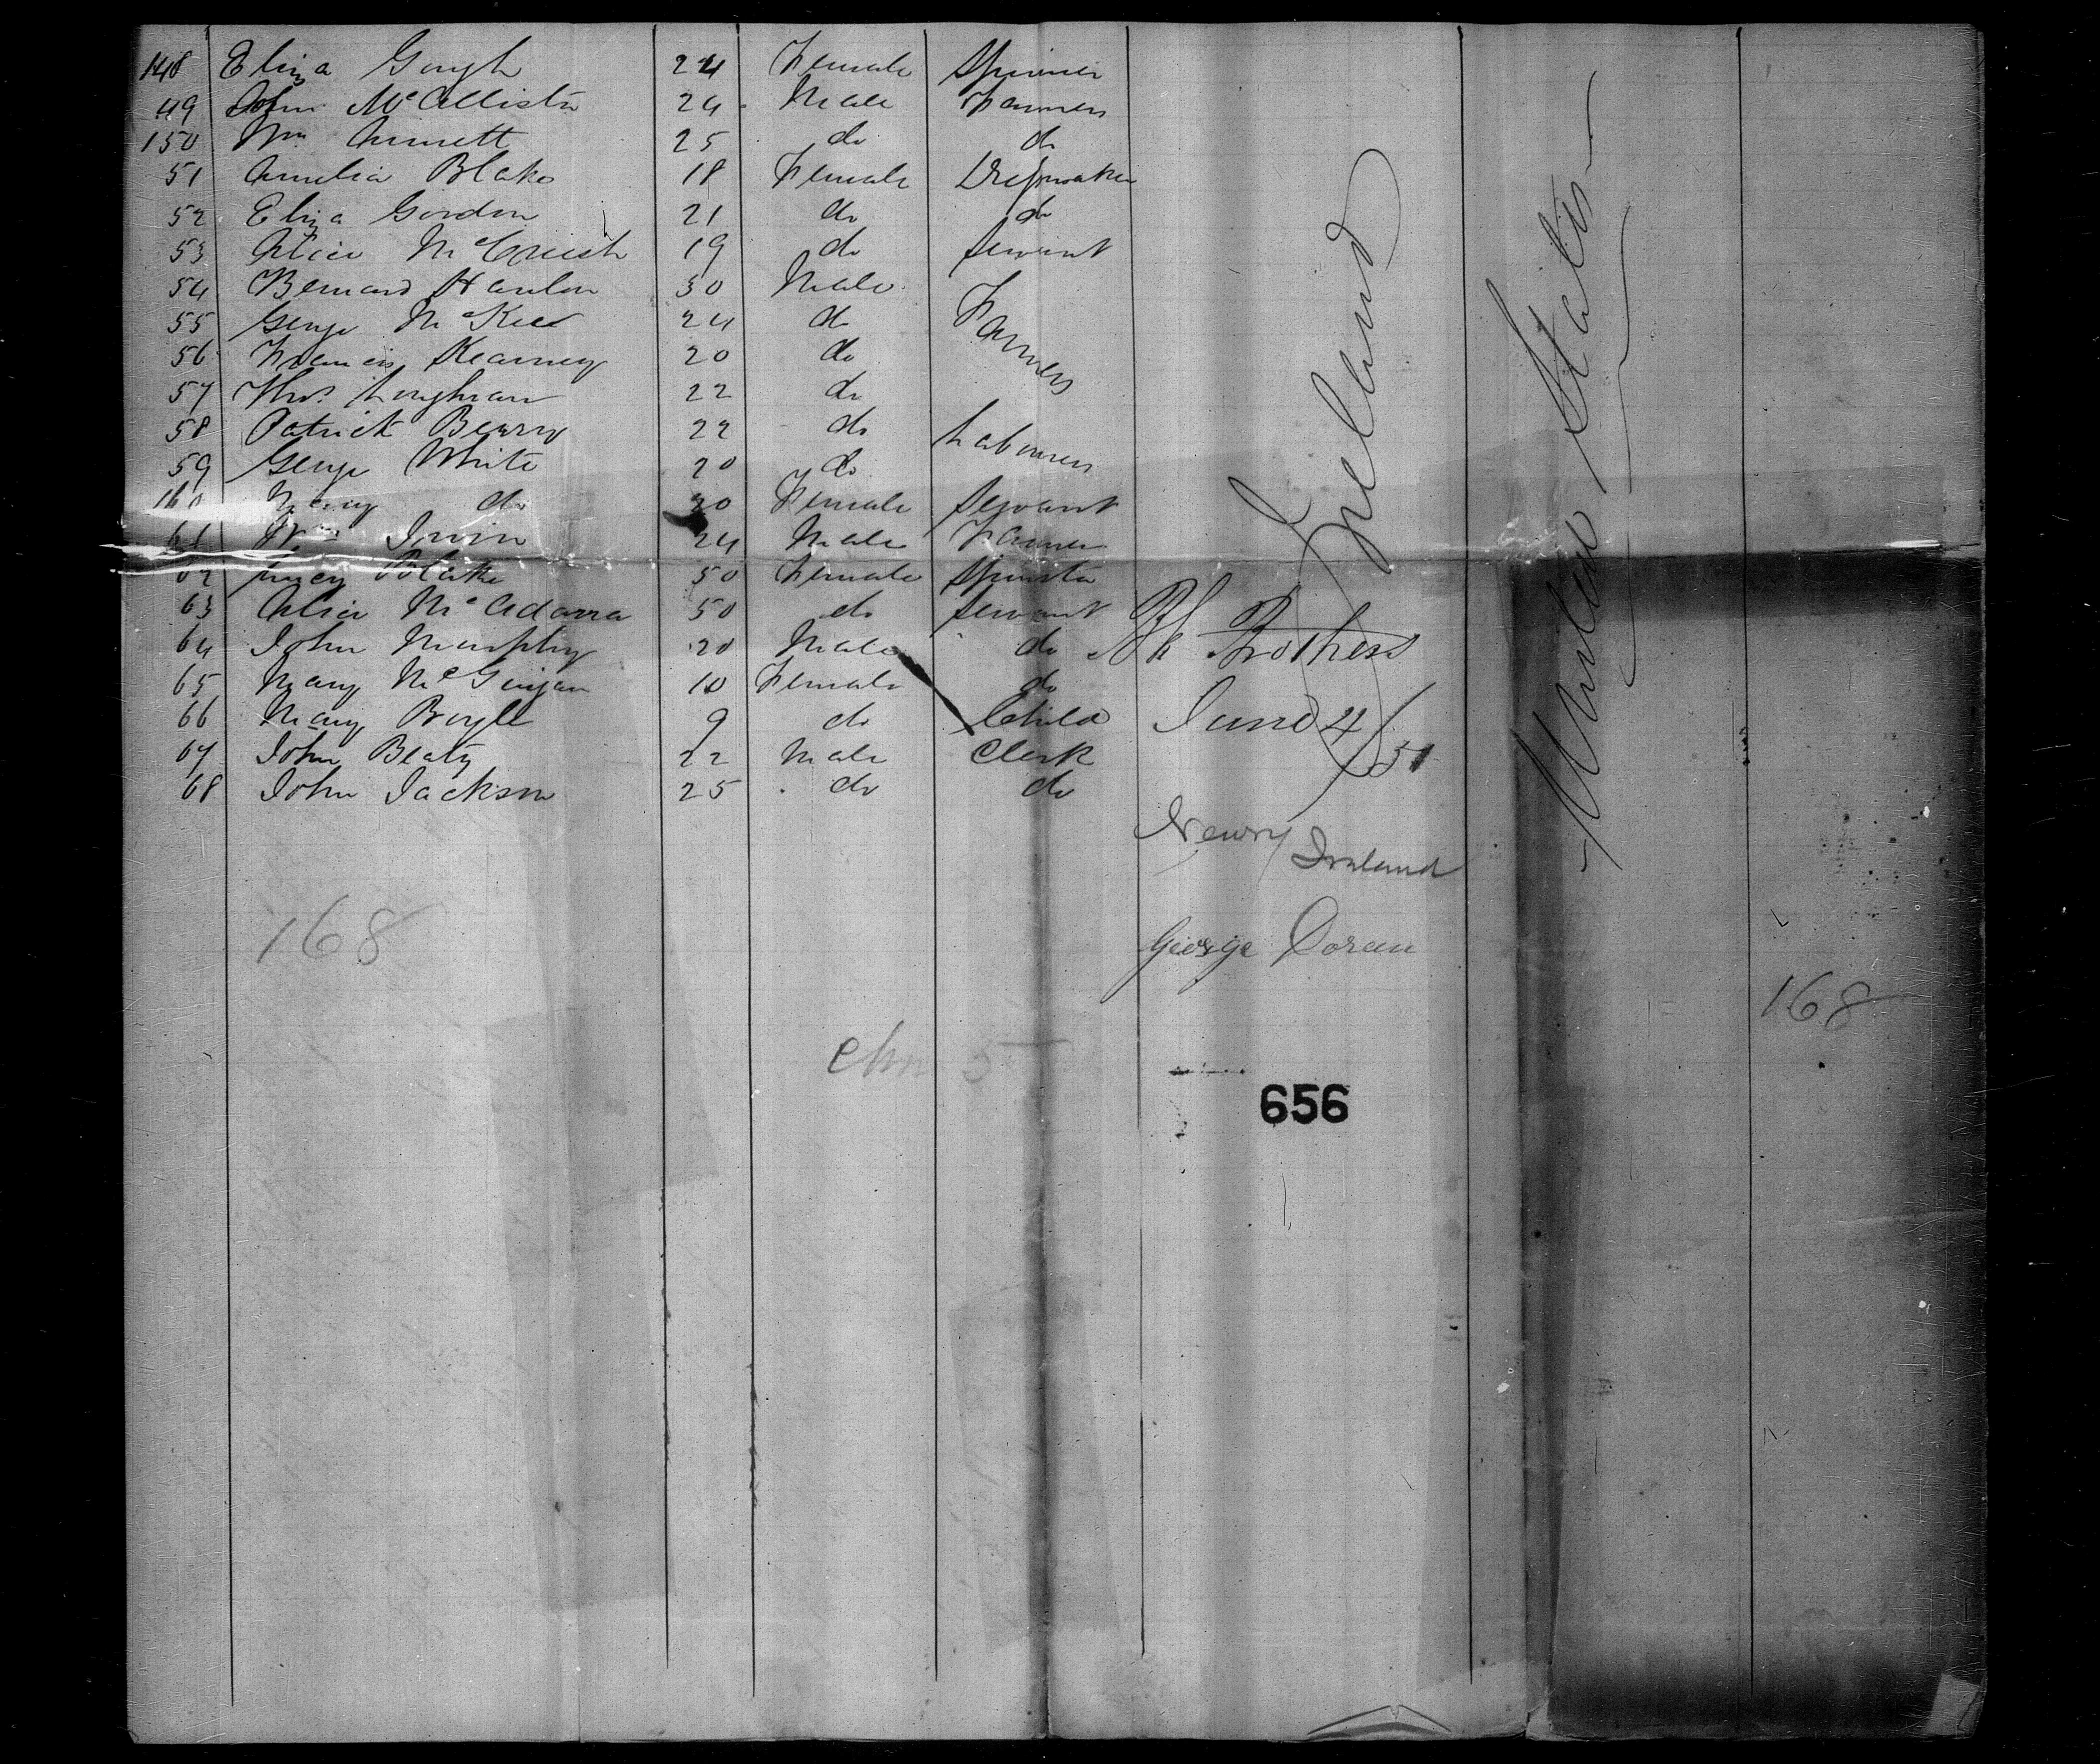 148 Eliza Gough 24 Female Spinner
49 John McAllister 24 Male Farmers
150 Wm Annett 25 do do
51 Amelia Blake 18 Female Dressmaker
52 Eliza Gordon 21 do do
53 Alice McCreesh 19 do Servant
54 Bernard Hanlon 30 Male
55 George McKee 24 do Farmers
56 Francis Kearney 20 do
57 Thos Loughran 22 do
58 Patrick Berry 22 do Labourers
59 George White 20 do
160 Mary do 20 Female Servant
61 Wm Irvin 24 Male Farmer
62 Lucy Blake 50 Female Spinster
63 Alice McAdarra 50 do Servant
64 John Murphy 20 Male do
65 Mary McGuigan 10 Female do
66 Mary Boyle 9 do Child
67 John Beaty 22 Male Clerk
68 John Jackson 25 do do
Ireland
United States
Bk Brothers
June 4/51
Newry Ireland
168
George Doran
168
5
656